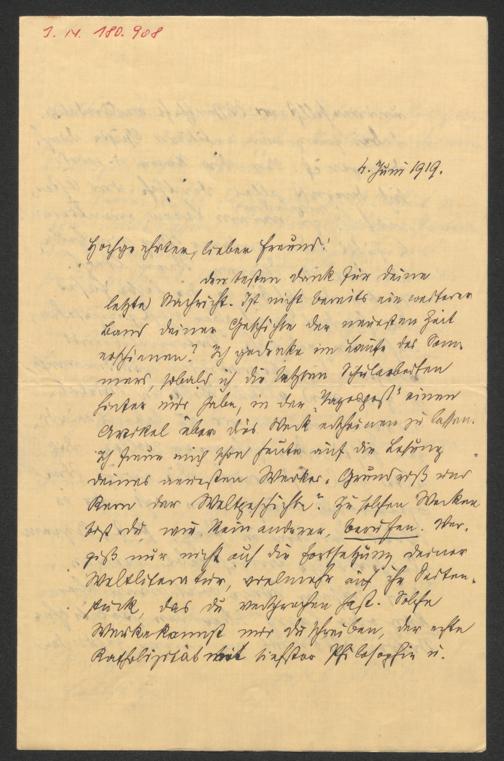 I. N. 180.908
4. Juni 1919.
Hochgeehrter, lieber Freund!
den besten Dank für deine
letzte Nachricht. Ist nicht bereits ein weiterer
Band deiner Geschichte der neuesten Zeit
erschienen? Ich gedenke im Laufe des Som-
mers, sobald ich die letzten Schularbeiten
hinter mir habe, in der "Tagespost" einen
Artikel über das Werk erscheinen zu lassen.
Ich freue mich schon heute auf die Lesung
deines neuesten Werkes "Grundriß und
Kern der Weltgeschichte". Zu solchen Werken
bist du, wie kein anderer, berufen. Ver-
giß nur nicht auf die Fortsetzung deiner
Weltliteratur, vielmehr auf ihr Seiten-
stück, das du versprochen hast. Solche
Werke kannst nur du schreiben, der echte
Katholizität mit tiefster Philosophie u.